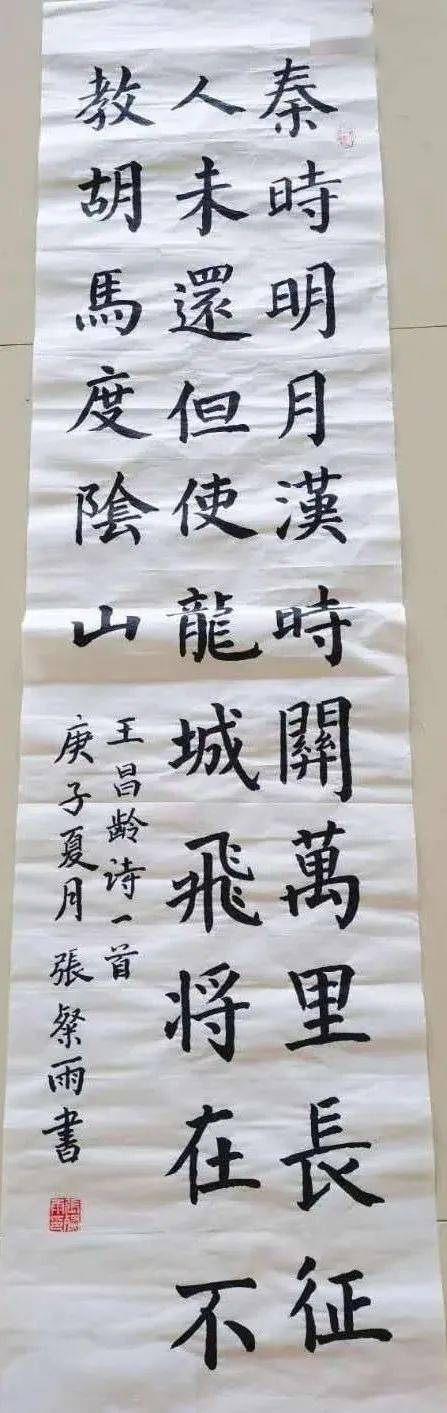 秦時明月漢時關萬里長征
人未還但使龍城飛将在不
教胡馬度陰山
王昌龄诗一首
庚子夏月張粲雨書